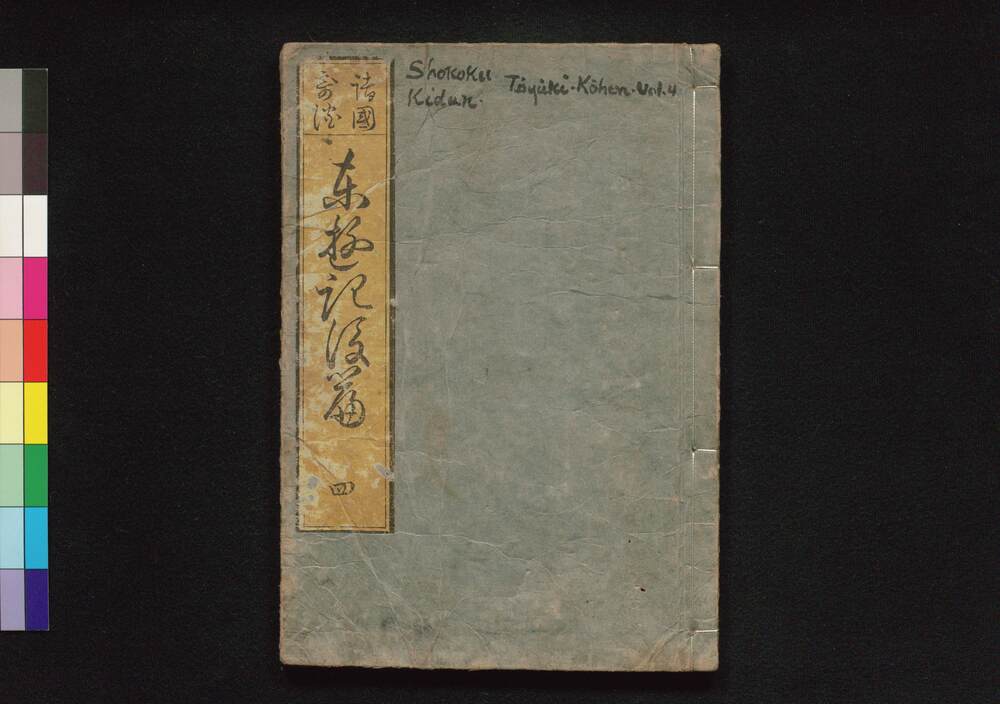 諸國
奇談
東遊記後篇
四
Shokoku
Kidan.
Tōyūki-Kōhen-Vol.4